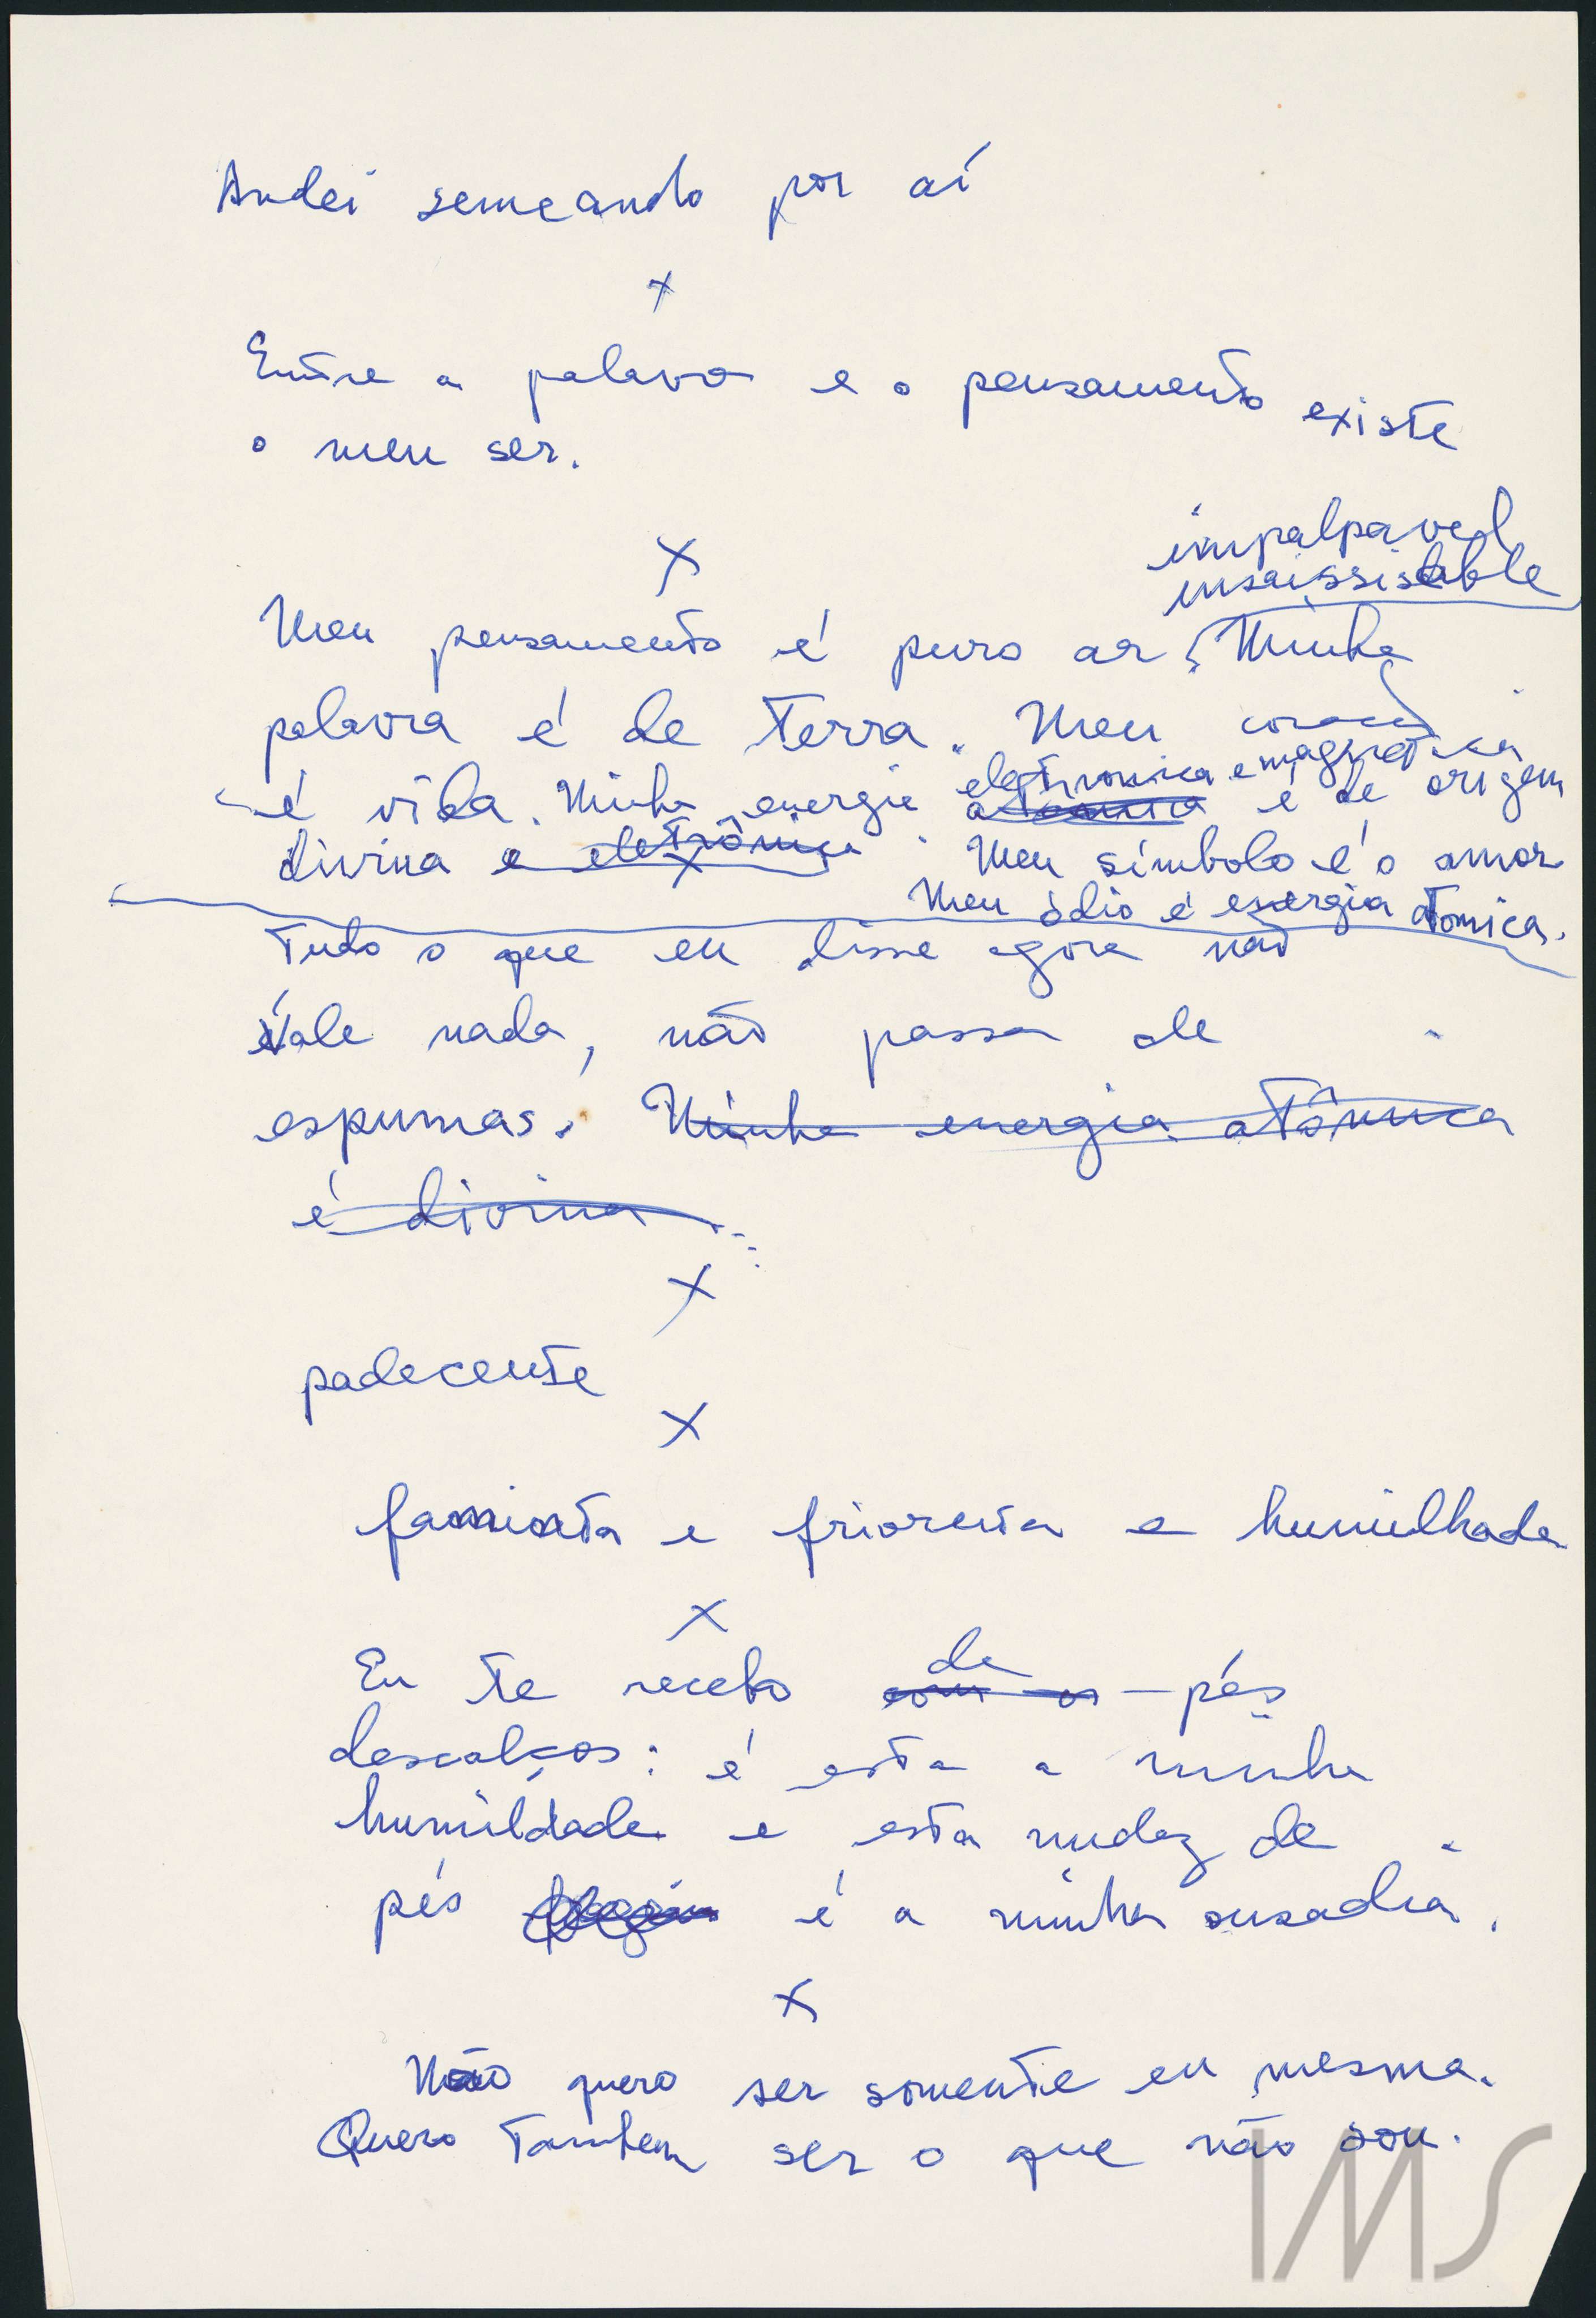 Andei semeando por aí
x
Entre a palavra e o pensamento existe
o meu ser.
x
impalpavel
insaissisable
Meu pensamento é puro ar, Minha
palavra é de terra. Meu coração
eletronica e magnetica
é vida. Minha energia atomica é de origem
divina e eletrônica. Meu símbolo é o amor
Meu ódio é energia atomica.
Tudo o que eu disse agora não
vale nada, não passa de
espumas. Minha energia atômica
é divina...
x
padecente
x
faminta e friorenta e humilhada
x
de
Eu te recebo com os pés
descalços: é esta a minha
humildade e esta nudez de
pés é a minha ousadia.
x
Não quero ser somente eu mesma.
Quero tambem ser o que não sou.
IMS